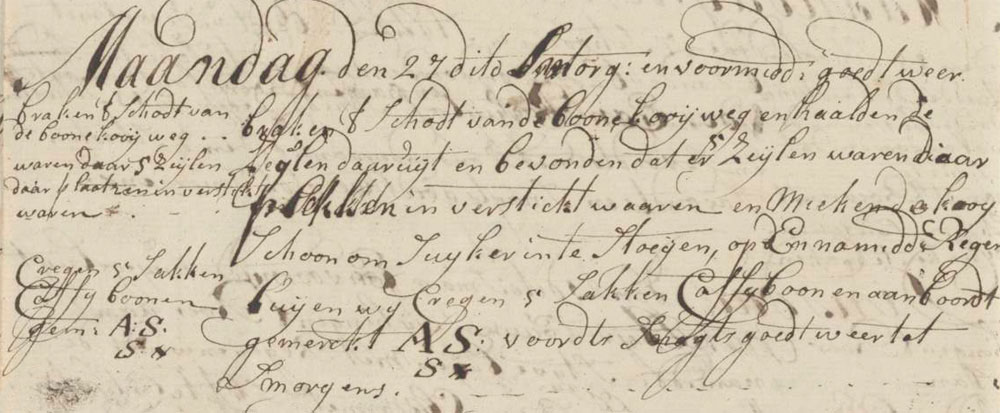 Maandag den 27 dito Smorg: en voormidd: goedt weer.
braken t Schodt van
de boonekooij weg . .
waren daar 5 Zeijlen
daar plaatzen in verstickt
waren
braken t Schodt van de boonekooij weg en haalden de
Zeijlen daar uijt en bevonden dat er 5 Zeijlen waren daar
plekken in verstickt waaren en Mieken de kooy
Schoon om Suyker in te Stoegen, op En namidd: Regen
Cregen 5 Sakken
Coffy boonen
gem: A:S:
S x
buijen wy Cregen 5 Zakken Coffyboonen aan boordt
gemerckt AS: voordts Snagts goedt weer tot
S x
Smorgens.